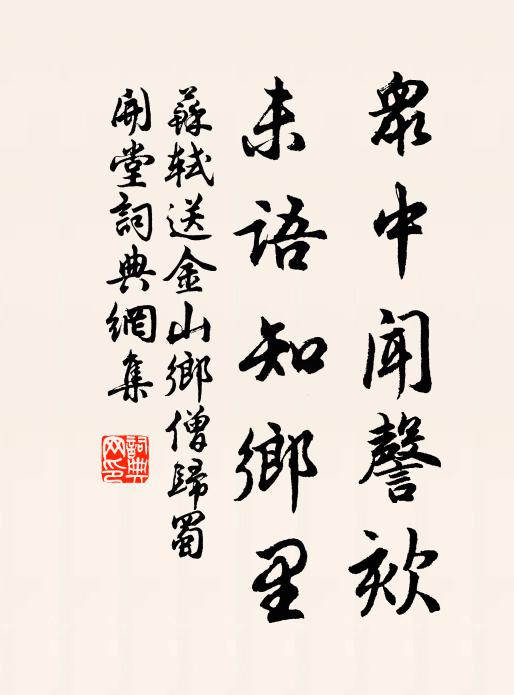 眾中聞謦欬
未語知鄉里
蘇軾送金山鄉僧歸蜀
開堂詞典網集
詞典
网印